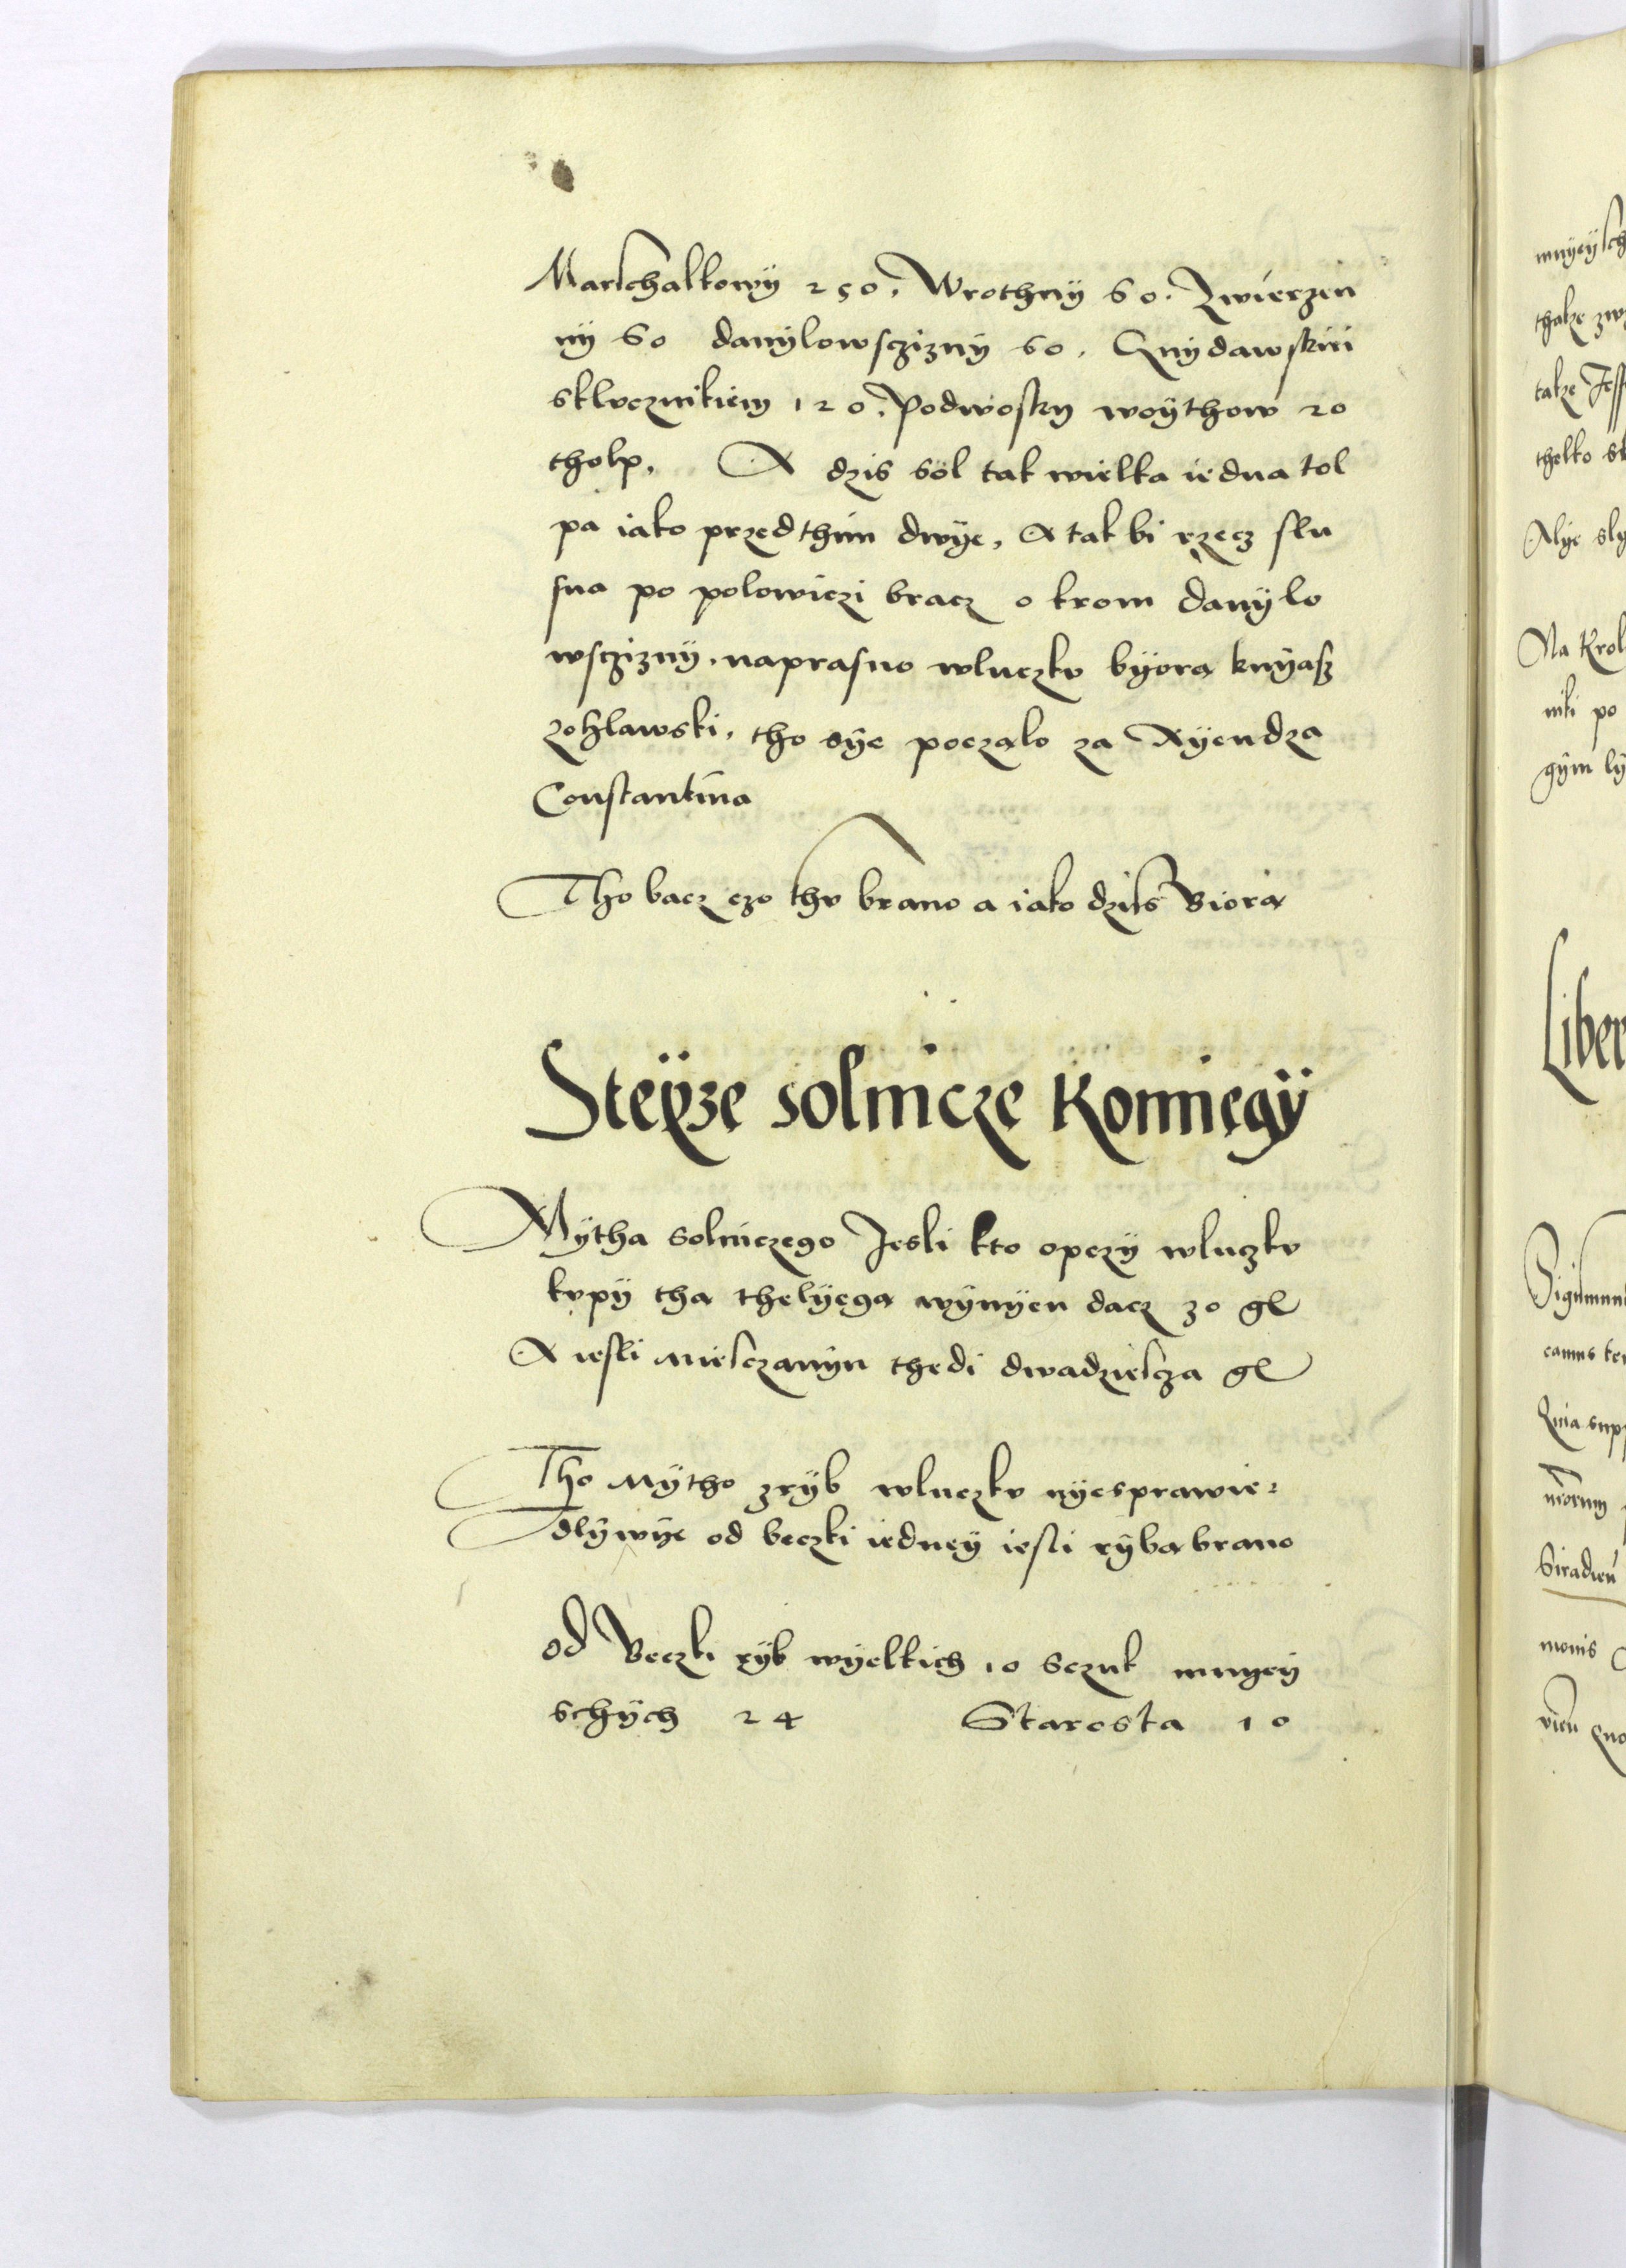 Marschalkowÿ 250. Wrothnÿ 60. Zwierzen
nÿ 60 danÿlowscziznÿ 60. Gnÿdawskiii
sklvcznikiem 120. Podwoskÿ woÿthow 20
tholp. A dzis sol tak wielka iedna tol
pa iako przedthim dwÿe, A tak bi rzecz slu
sna po polowiczi bracz o krom danÿlo
wscziznÿ. naprasno wluczkv bÿorą knÿasz
zohlawski, tho sÿe poczalo za Xÿendza
Constantina
Tho bacz czo thv brano a iako dzis biorą
Steÿze solnicze Konnięgÿ
Mÿtha solniczego Jesli kto opczÿ wluczkv
kvpÿ tha thelÿega wÿnÿen dacz 30 gl
A iesli miesczanÿn thedi dwadziescza gl
Tho Mÿtho zrÿb wluczkv nÿesprawie:
dlÿwÿe od beczki iednej iesli rÿba brano
od beczki rÿb wÿelkich 10 scznk mnÿeÿ
schÿch 24 Starosta 10
mnÿeÿsch
thakze
takze
thelko
Alÿe
Na Krol
niki po
gÿm
Liber
Sigismun
Quia
Siradien
monis